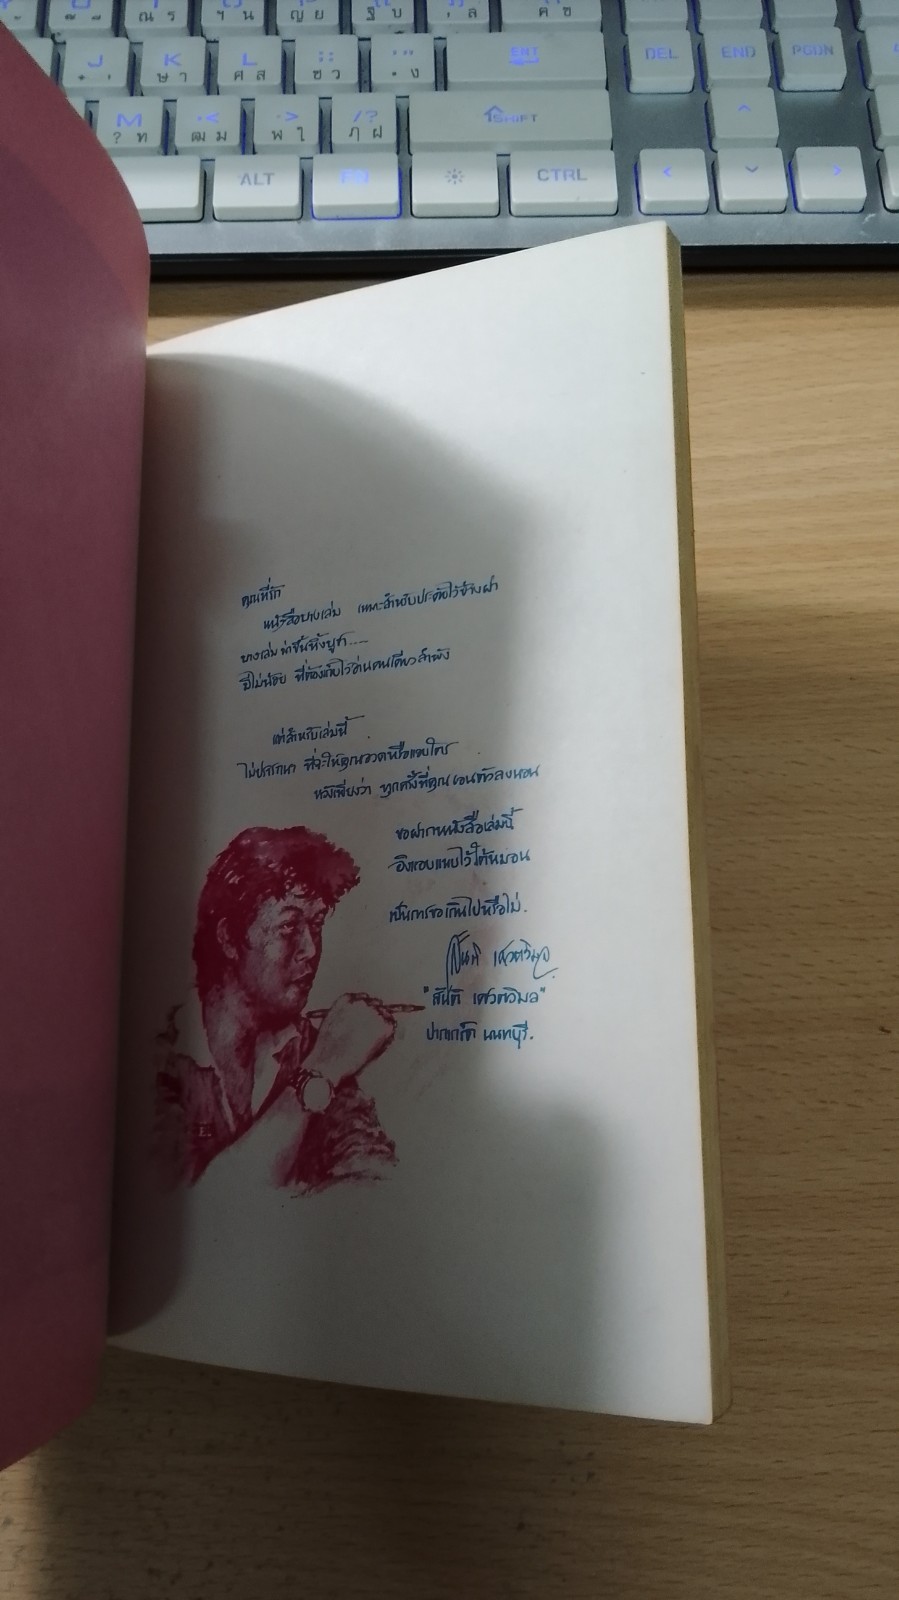 ญ ย
ฐ บ
, ล
ค ช
J
K
L
ENT
DEL
END
PGDN
ษ า
ศ ส
ซ ว
. ง
M
.<
.>
/?
SHIFT
? ท
ฒ ม
พ ใ
ฦ ฝ
ALT
FN
CTRL
คุณที่รัก
หนังสือบางเล่ม เหมาะสำหรับประดับไว้ข้างฝา
บางเล่ม น่าขึ้นหิ้งบูชา....
มีไม่น้อย ที่ต้องเก็บไว้อ่านคนเดียวลำพัง
แต่สำหรับเล่มนี้
ไม่ปรารถนา ที่จะให้คุณอวดหรือแอบใคร
หวังเพียงว่า ทุกครั้งที่คุณเอนตัวลงนอน
ขอฝากหนังสือเล่มนี้
อิงแอบแนบไว้ใต้หมอน
เป็นการขอเกินไปหรือไม่.
สันติ เศวตวิมล
"สันติ เศวตวิมล"
ปากเกร็ด นนทบุรี.